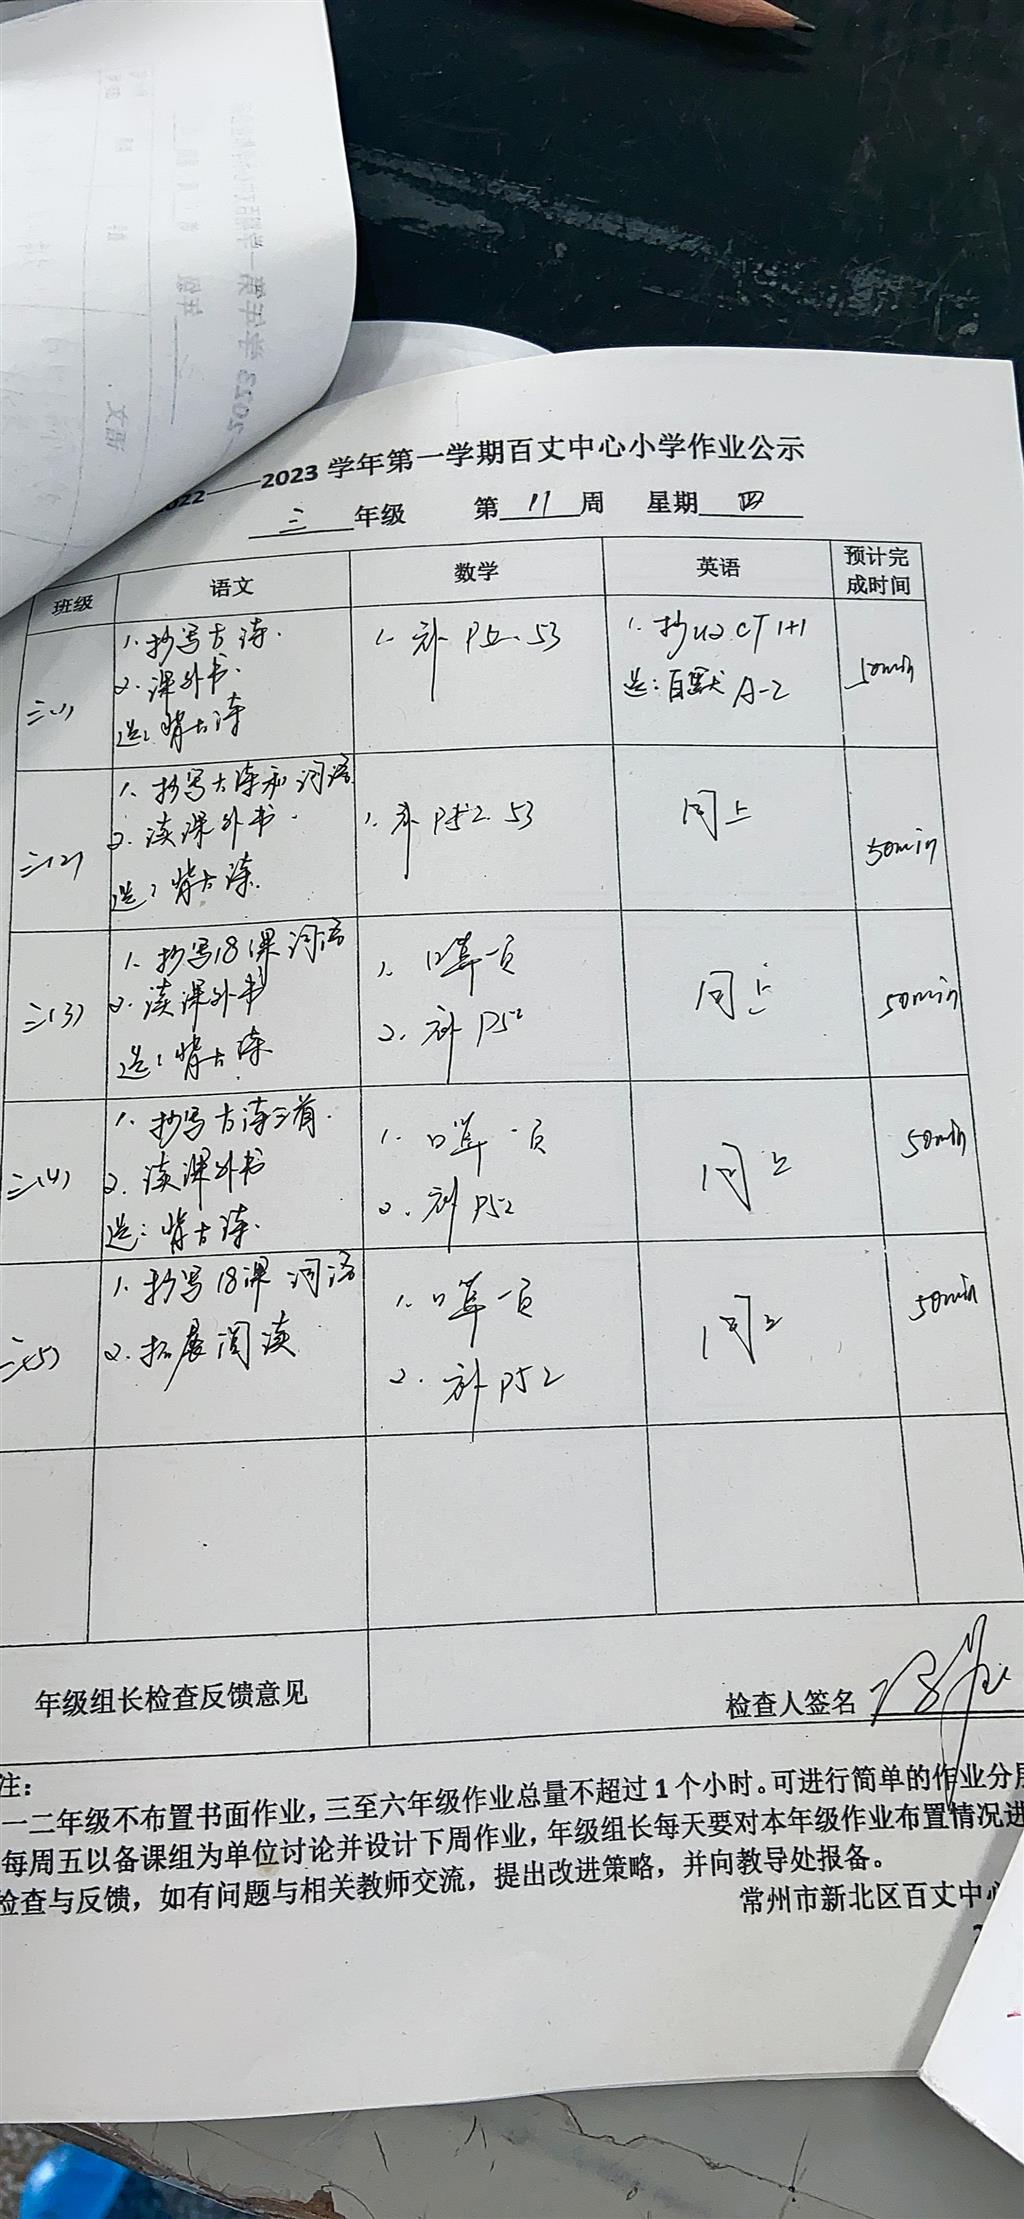 022——2023 学年第一学期百丈中心小学作业公示
三 年级 第 11 周 星期 四
班级 语文 数学 英语 预计完成时间
三(1)
1. 抄写古诗.
2. 课外书.
选: 背古诗
1. 补 P52. 53
1. 抄U2 CT 1+1
选: 自默 A-2
50min
三(2)
1. 抄写古诗和词语
2. 读课外书.
选: 背古诗.
1. 补 P52. 53
同上
50min
三(3)
1. 抄写18课词语
2. 读课外书
选: 背古诗
1. 口算一页
2. 补 P52
同上
50min
三(4)
1. 抄写古诗三首.
2. 读课外书
选: 背古诗.
1. 口算一页
2. 补 P52
同上
50min
三(5)
1. 抄写18课 词语
2. 拓展阅读
1. 口算一页
2. 补 P52
同上
50min
年级组长检查反馈意见
检查人签名
注:
一二年级不布置书面作业，三至六年级作业总量不超过 1 个小时。可进行简单的作业分层
每周五以备课组为单位讨论并设计下周作业，年级组长每天要对本年级作业布置情况进
检查与反馈，如有问题与相关教师交流，提出改进策略，并向教导处报备。
常州市新北区百丈中心